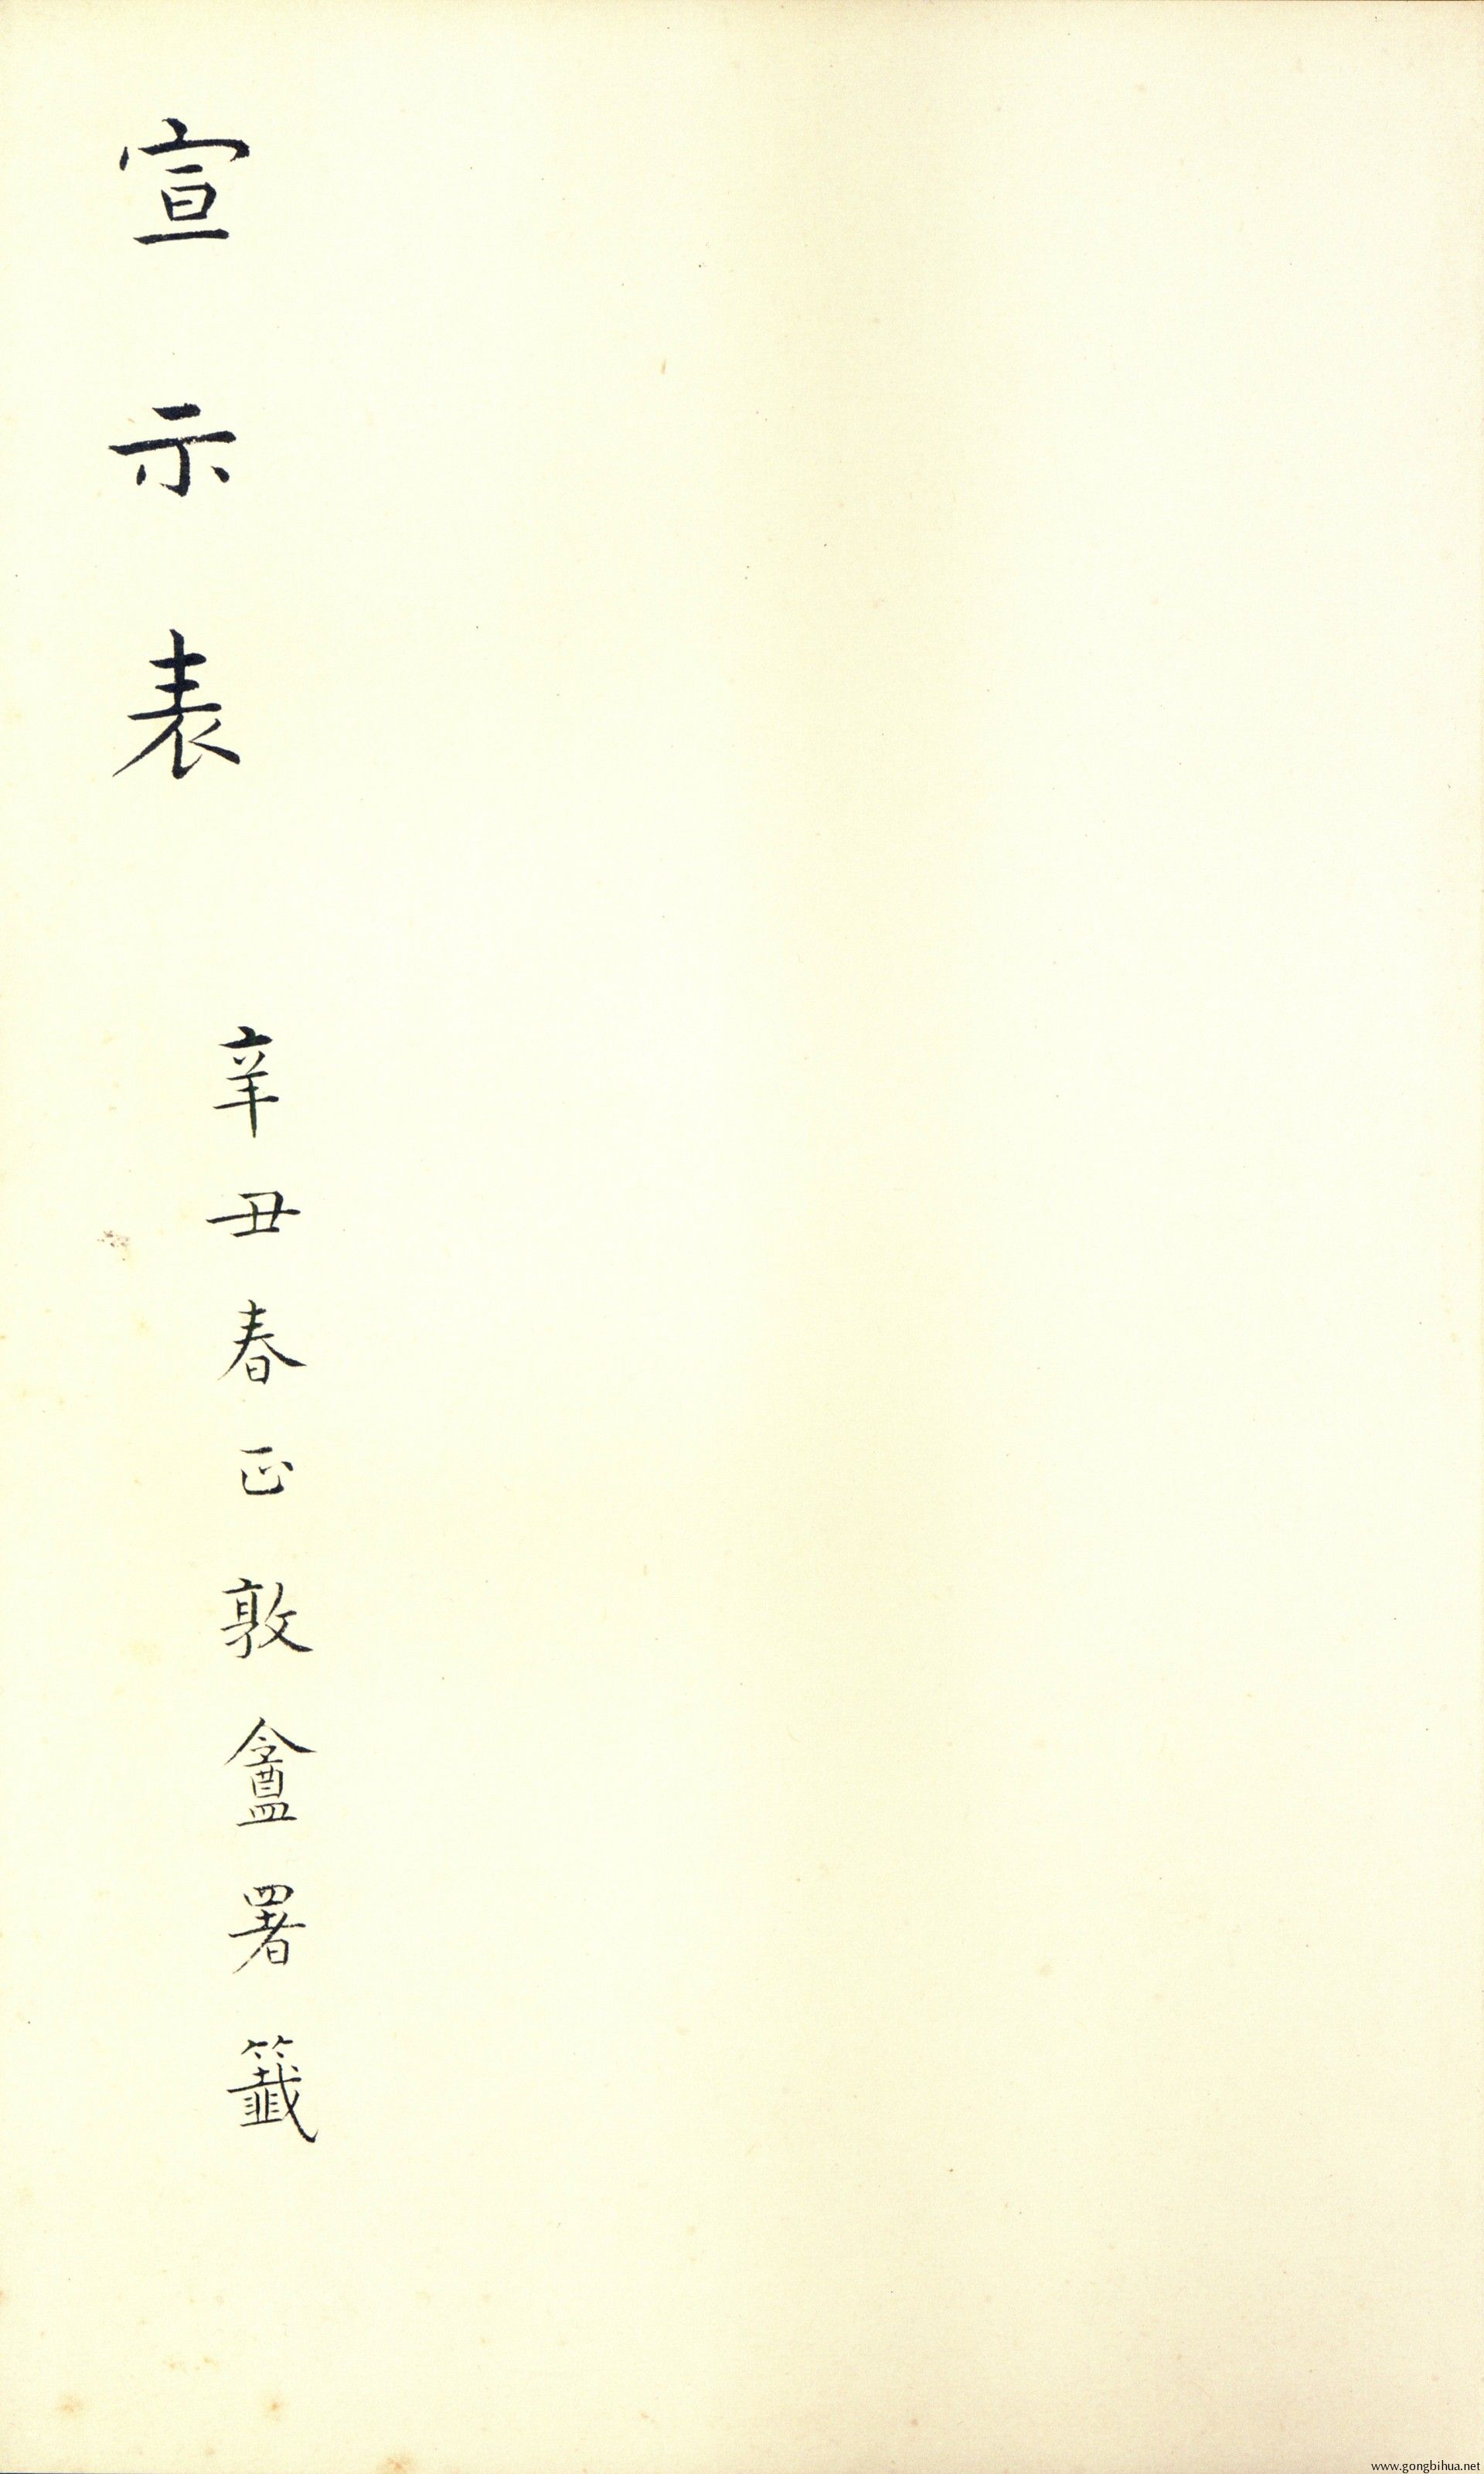 宣示表
辛丑春正敦盦署籤
www.gongbihua.net